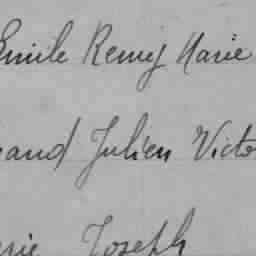 Emile Remy Marie
and Julien Victo
rie Joseph